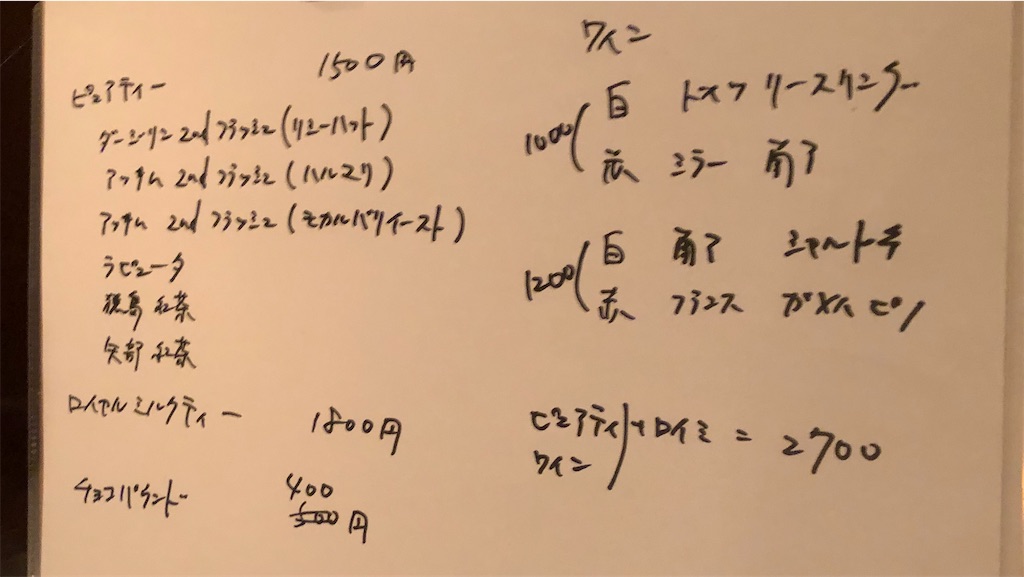 1500円
ピュアティー
ダージリン 2nd フラッシュ (リシーハット)
アッサム 2nd フラッシュ (ハルマリ)
アッサム 2nd フラッシュ (モカルバリイースト)
ラピュータ
紅茶
矢部 紅茶
ロイヤルミルクティー 1800円
チョコパウンドー 400
500円
ワイン
1000( 白 ドイツ リースリング
赤 シラー 南ア
1200( 白 南ア シャルドネ
赤 フランス ガメイ ピノ
ピュアティ
ワイン )+ロイミ = 2700